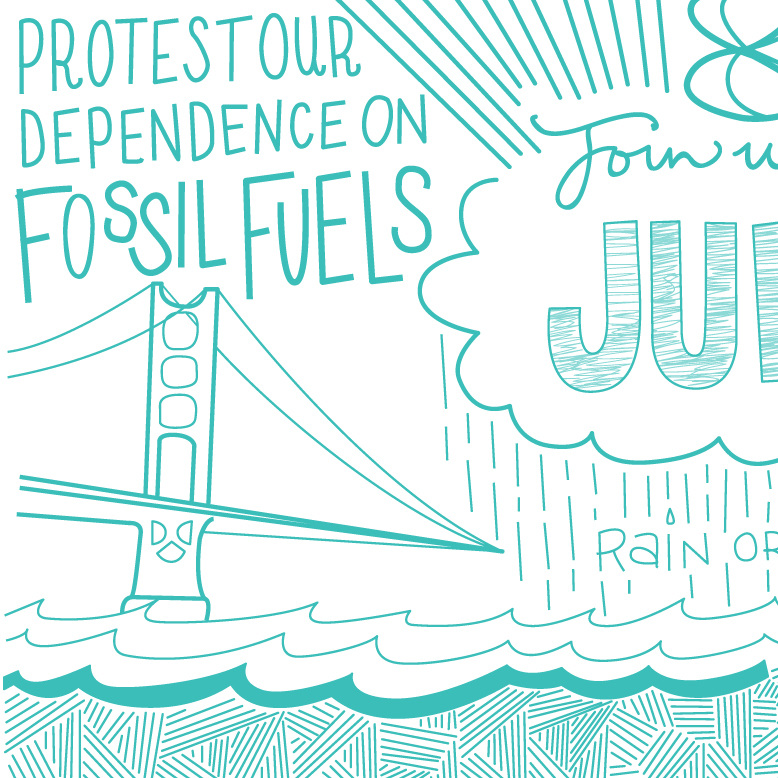 PROTEST OUR
DEPENDENCE ON
FOSSIL FUELS
Join
JU
RaiN OR